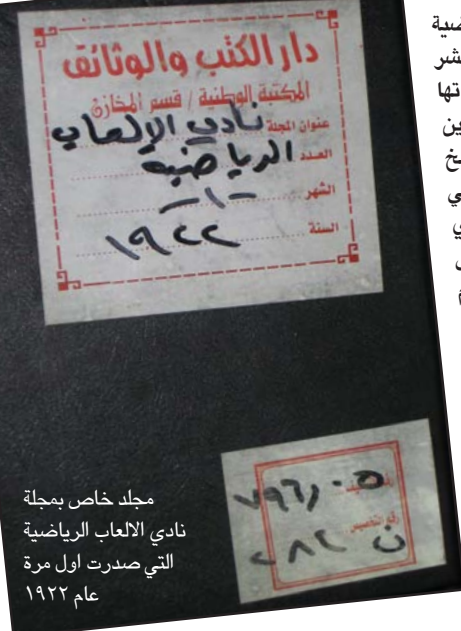 دار الكتب والوثائق
المكتبة الوطنية / قسم المخازن
عنوان المجلة نادي الالعاب
العدد الرياضية
الشهر -١-
السنة ١٩٢٢
٧٩٦٫٠٥
ن ٢٨٢
مجلد خاص بمجلة
نادي الالعاب الرياضية
التي صدرت اول مرة
عام ١٩٢٢